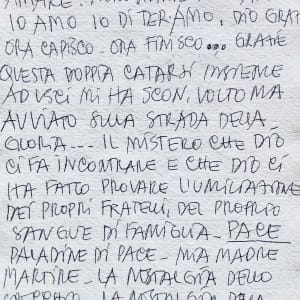 IO AMO IO DI TERAMO, DIO GRAT
ORA CAPISCO - ORA FINISCO... GRAZIE
QUESTA DOPPIA CATARSI INSIEME
AD USCI MI HA SCONVOLTO MA
AVVIATO SULLA STRADA DELLA
GLORIA--- IL MISTERO CHE DIO
CI FA INCONTRARE E CHE DIO CI
HA FATTO PROVARE L'UMILIAZIONE
DEI PROPRI FRATELLI, DEL PROPRIO
SANGUE DI FAMIGLIA - PACE
PALADINE DI PACE - MIA MADRE
MARTIRE - LA NOSTALGIA DELLO
LA NOSTALGIA